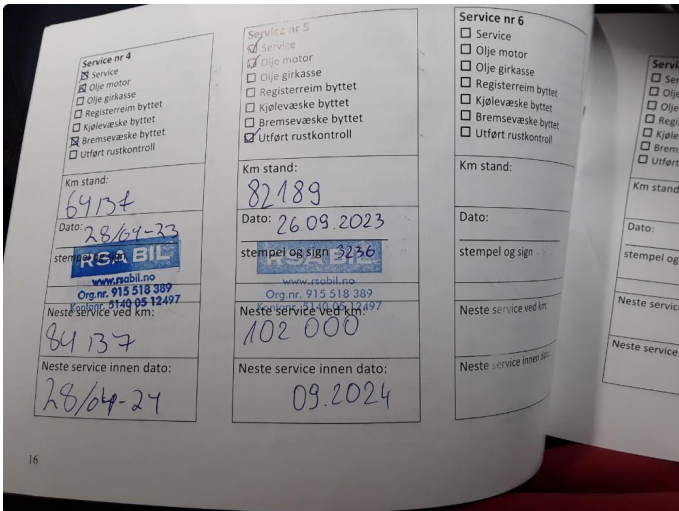 Service nr 4
Service
Olje motor
Olje girkasse
Registerreim byttet
Kjølevæske byttet
Bremsevæske byttet
Utført rustkontroll
Km stand:
64137
Dato: 28/04-23
stempel og sign
RSA BIL
www.rsabil.no
Org.nr. 915 518 389
Kontonr. 5140 05 12497
Neste service ved km:
84137
Neste service innen dato:
28/04-24
16
Service nr 5
Service
Olje motor
Olje girkasse
Registerreim byttet
Kjølevæske byttet
Bremsevæske byttet
Utført rustkontroll
Km stand:
82189
Dato: 26.09.2023
stempel og sign 3236
RSA BIL
www.rsabil.no
Org.nr. 915 518 389
Kontonr. 5140 05 12497
Neste service ved km:
102 000
Neste service innen dato:
09.2024
Service nr 6
Service
Olje motor
Olje girkasse
Registerreim byttet
Kjølevæske byttet
Bremsevæske byttet
Utført rustkontroll
Km stand:
Dato:
stempel og sign
Neste service ved km:
Neste service innen dato:
Olje
Olje
Km stand
Dato:
stempel og
Neste service
Neste service